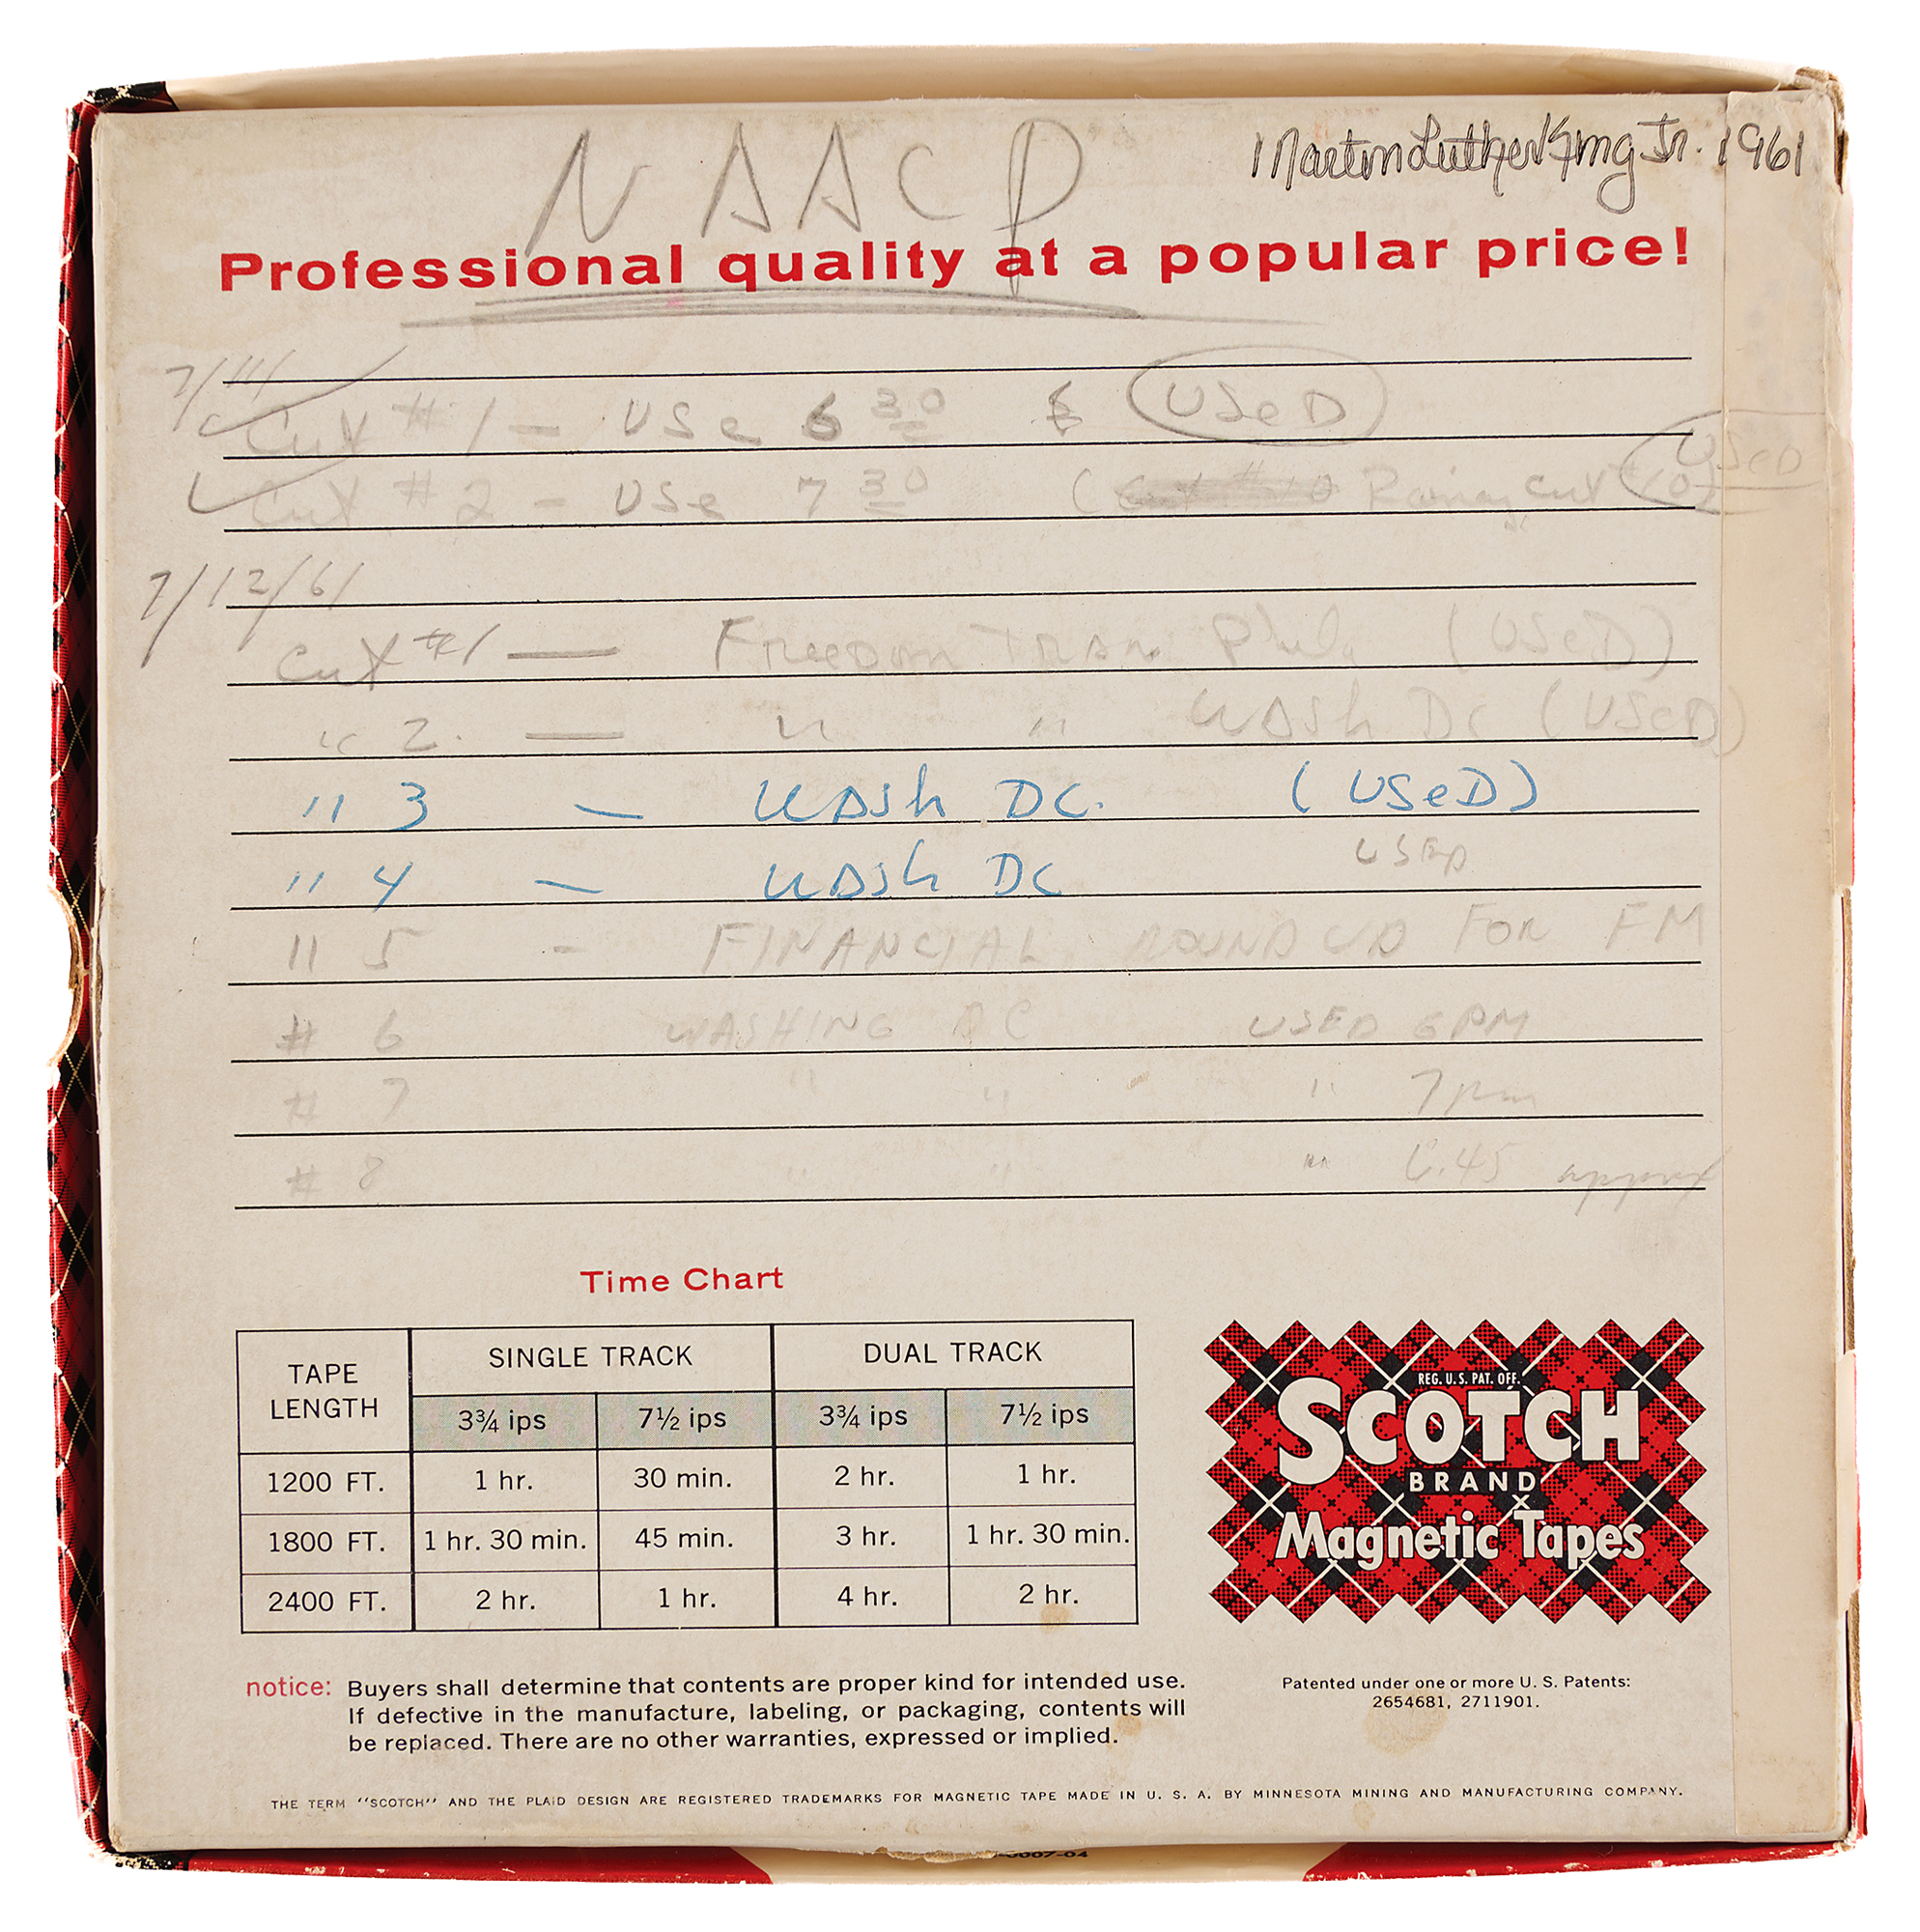 NAACP
Martin Luther King Jr. 1961
Professional quality at a popular price!
7/11/
Cut #1 — Use 6 30 USeD
Cut #2 - USe 7 30 ( Cut #10 USeD
7/12/61
Cut #1 — Freedom Train Phila (USeD)
" 2. — " " WASh DC (USeD)
" 3 — WASh DC. (USeD)
" 4 — WASh DC USED
" 5 - FINANCIAL ROUND UP FOR FM
# 6 WASHING DC USED 6 PM
# 7 " " " 7 pm
# 8 " " " 6.45 approx
Time Chart
TAPE LENGTH SINGLE TRACK DUAL TRACK
3¾ ips 7½ ips 3¾ ips 7½ ips
1200 FT. 1 hr. 30 min. 2 hr. 1 hr.
1800 FT. 1 hr. 30 min. 45 min. 3 hr. 1 hr. 30 min.
2400 FT. 2 hr. 1 hr. 4 hr. 2 hr.
REG. U. S. PAT. OFF.
SCOTCH
BRAND
Magnetic Tapes
notice: Buyers shall determine that contents are proper kind for intended use.
If defective in the manufacture, labeling, or packaging, contents will
be replaced. There are no other warranties, expressed or implied.
Patented under one or more U. S. Patents:
2654681, 2711901.
THE TERM "SCOTCH" AND THE PLAID DESIGN ARE REGISTERED TRADEMARKS FOR MAGNETIC TAPE MADE IN U. S. A. BY MINNESOTA MINING AND MANUFACTURING COMPANY.